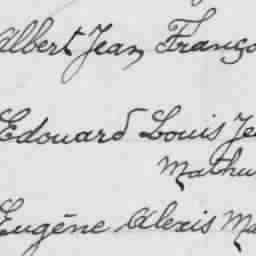 Albert Jean Franço
Edouard Louis Je
Mathu
Eugène Alexis Ma